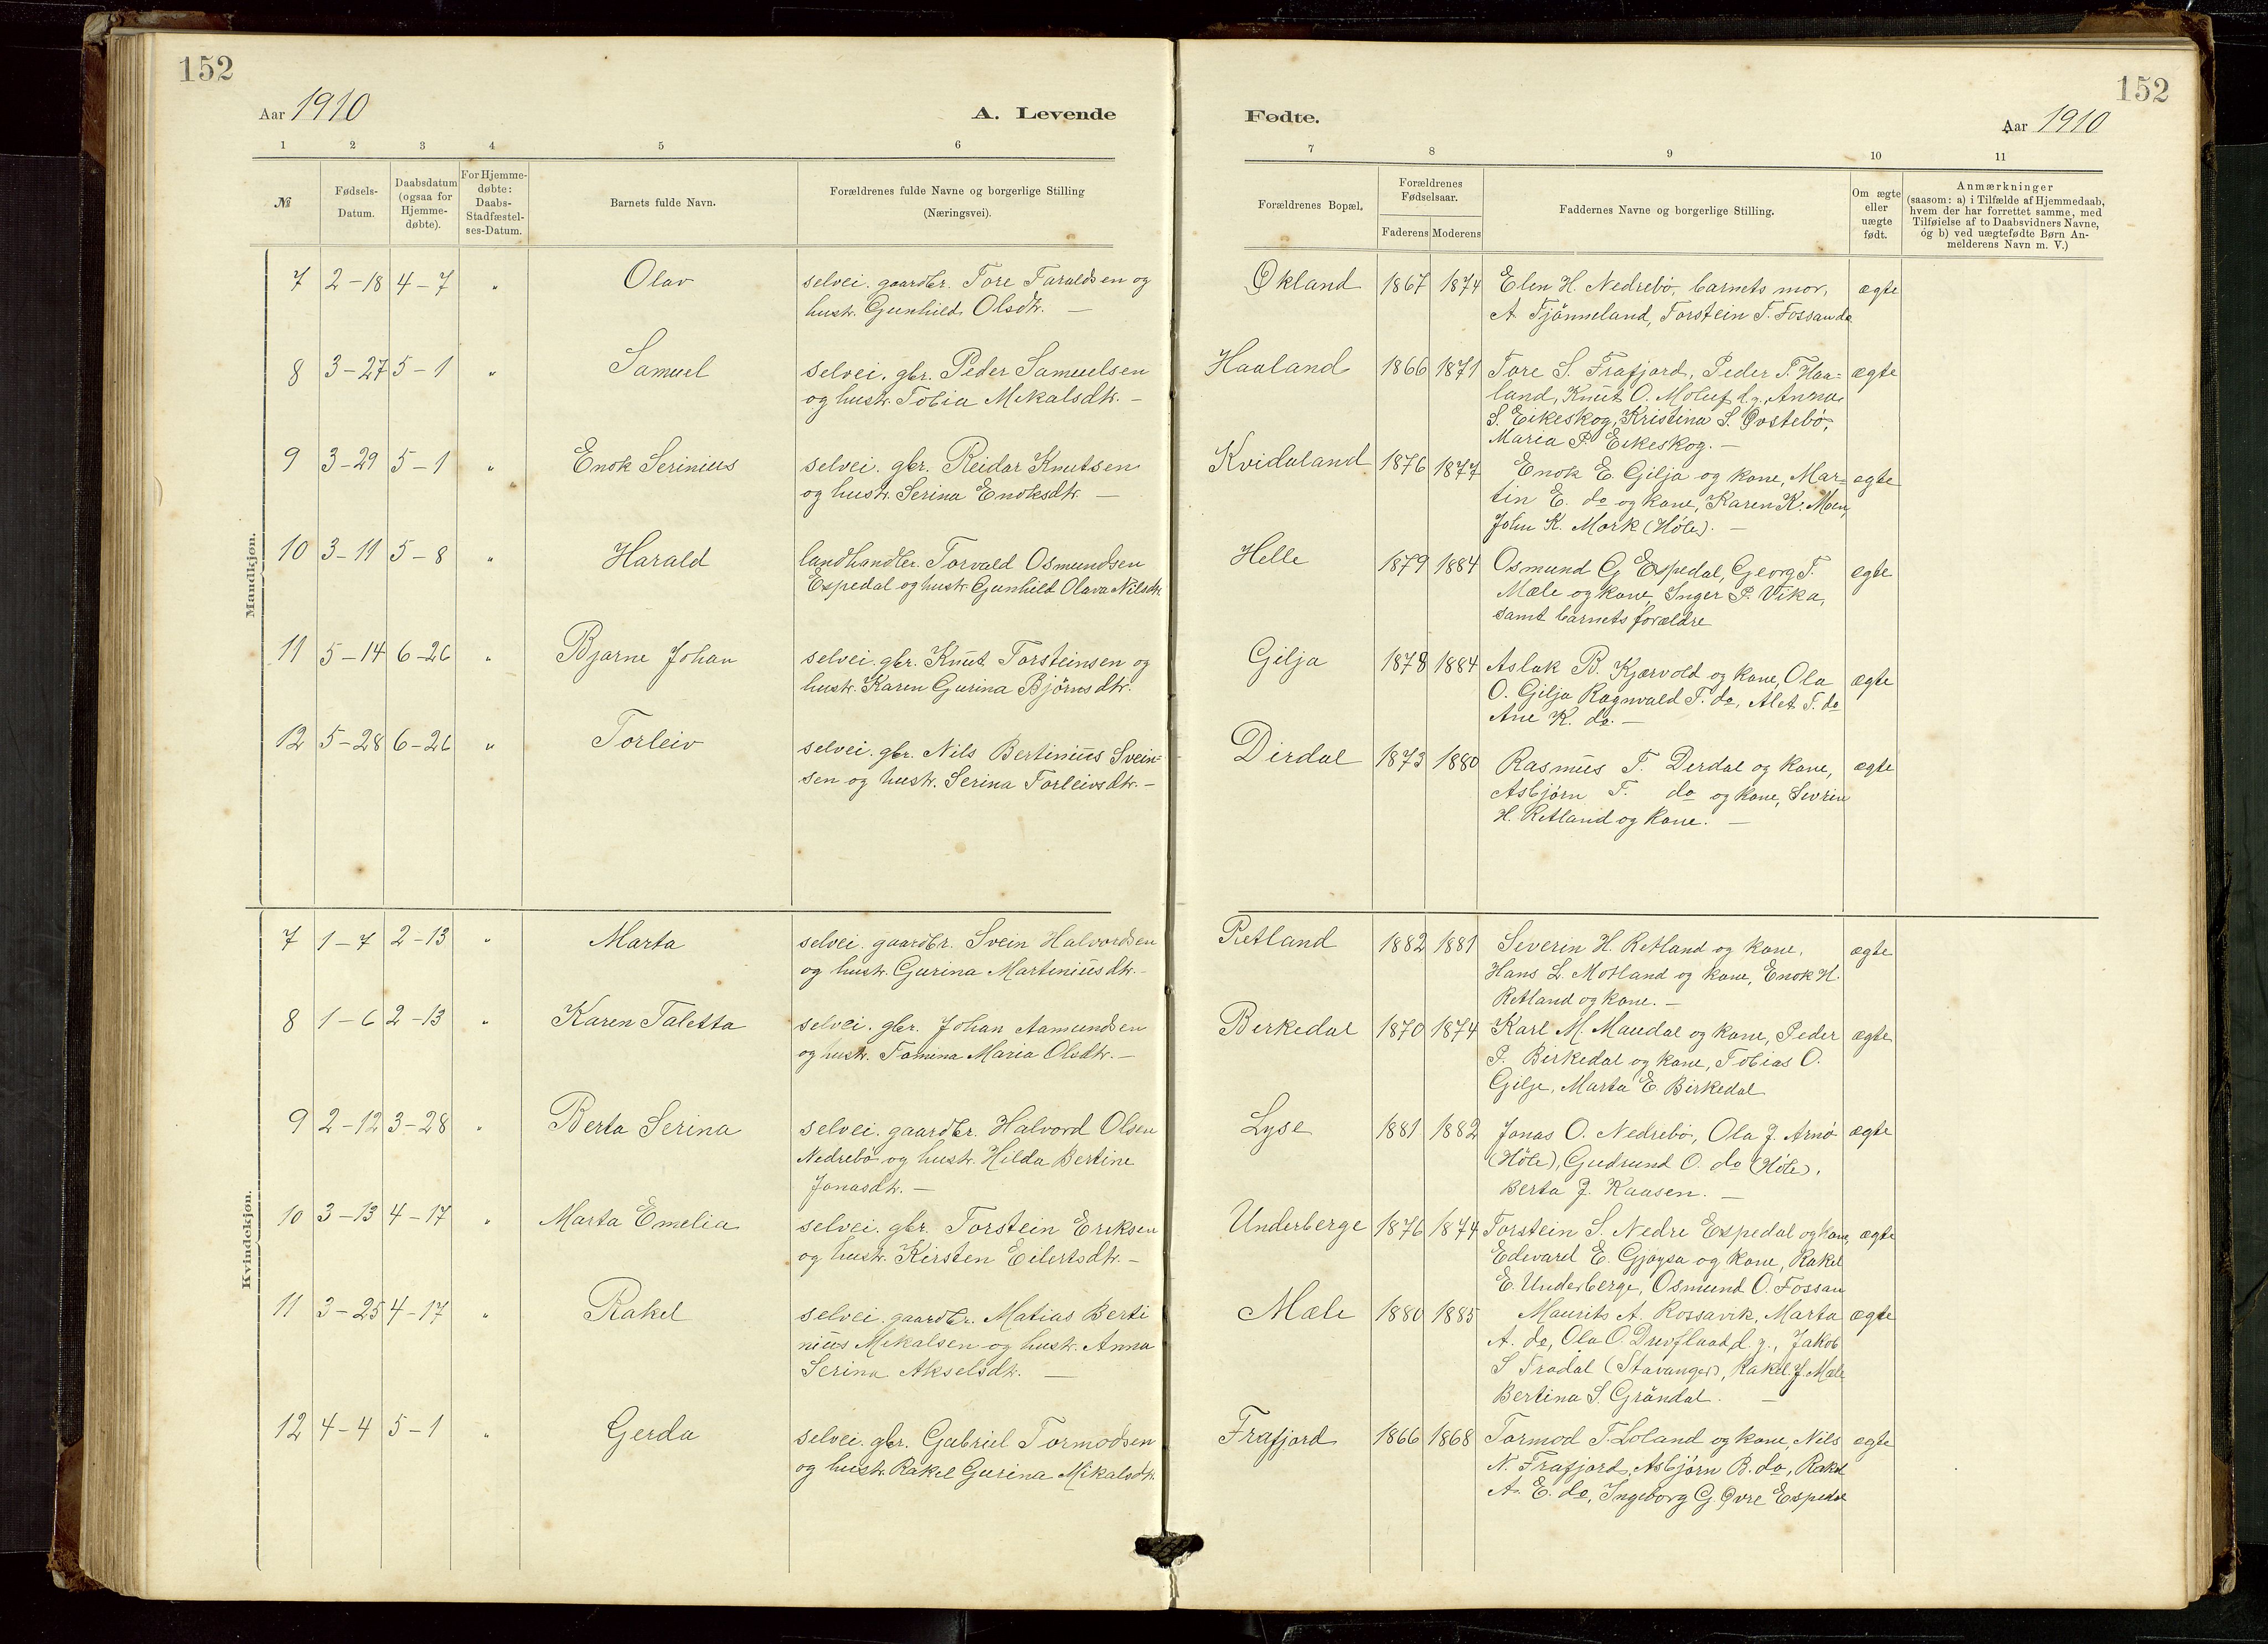 152
Aar 1910
A. Levende
1 2 3 4 5 6
№
Fødsels-Datum.
Daabsdatum (ogsaa for Hjemme-døbte).
For Hjemme-døbte: Daabs-Stadfæstel-ses-Datum.
Barnets fulde Navn.
Forældrenes fulde Navne og borgerlige Stilling
(Næringsvei).
Mandkjøn.
7 2-18 4-7 " Olav selvei. gaardbr. Tore Taraldsen og
hustr. Gunhild Olsdtr. —
8 3-27 5-1 " Samuel selvei. gbr. Peder Samuelsen
og hustr. Tobia Mikalsdtr. —
9 3-29 5-1 " Enok Serinius selvei. gbr. Reidar Knutsen
og hustr. Serina Enoksdtr. —
10 3-11 5-8 " Harald landhandler. Torvald Osmundsen
Espedal og hustr. Gunhild Olava Nilsdtr.
11 5-14 6-26 " Bjarne Johan selvei. gbr. Knut Torsteinsen og
hustr. Karen Gurina Bjørnsdtr.
12 5-28 6-26 " Torleiv selvei. gbr. Nils Bertinius Svein=
sen og hustr. Serina Torleivsdtr. —
Kvindekjøn.
7 1-7 2-13 " Marta selvei. gaardbr. Svein Halvordsen
og hustr. Gurina Martiniusdtr. —
8 1-6 2-13 " Karen Taletta selvei. gbr. Johan Aamundsen
og hustr. Tomina Maria Olsdtr. —
9 2-12 3-28 " Berta Serina selvei. gaardbr. Halvord Olsen
Nedrebö og hustr. Hilda Bertine
Jonasdtr. —
10 3-13 4-17 " Marta Emelia selvei. gbr. Torstein Eriksen
og hustr. Kirsten Eilertsdtr. —
11 3-25 4-17 " Rakel selvei. gaardbr. Matias Berti
nius Mikalsen og hustr. Anna
Serina Akselsdtr. —
12 4-4 5-1 " Gerda selvei. gbr. Gabriel Tormodsen
og hustr. Rakel Gurina Mikalsdtr.
152
Fødte.
Aar 1910
7 8 9 10 11
Forældrenes Bopæl.
Forældrenes Fødselsaar.
Faderens Moderens
Faddernes Navne og borgerlige Stilling.
Om ægte eller uægte født.
Anmærkninger
(saasom: a) i Tilfælde af Hjemmedaab,
hvem der har forrettet samme, med
Tilføielse af to Daabsvidners Navne,
og b) ved uægtefødte Børn An-
melderens Navn m. V.)
Økland 1867 1874 Elen H. Nedrebö, barnets mor, ægte
A Tjönneland, Torstein T. Fossan do
Haaland 1866 1871 Tore S. Frafjord, Peder T. Haa= ægte
land, Knut O. Moluf d.y., Anna
S. Eikeskog, Kristina S. Øvstebö,
Maria P. Eikeskog. —
Kvidaland 1876 1877 Enok E. Gilja og kone, Mar= ægte
tin E. do og kone, Karen K. Moen,
John K. Mork (Höle). —
Helle 1879 1884 Osmund G Espedal, Georg T. ægte
Mæle og kone, Inger P. Vika,
samt barnets forældre
Gilja 1878 1884 Aslak B. Kjærvold og kone, Ola ægte
O. Gilja Ragnvald T. do, Alet T. do
Ane K. do. —
Dirdal 1873 1880 Rasmus T. Derdal og kone, ægte
Asbjörn T. do og kone, Sevrin
H. Retland og kone. —
Retland 1882 1881 Severin H. Retland og kone. ægte
Hans L. Motland og kone, Enok H.
Retland og kone. —
Birkedal 1870 1874 Karl M. Maudal og kone, Peder ægte
P. Birkedal og kone, Tobias O.
Gilje, Marta E. Birkedal
Lyse 1881 1882 Jonas O. Nedrebö, Ola J. Arnö ægte
(Höle), Gudrund O. do (Höle).
Berta J. Kaasen. —
Underberge 1876 1874 Torstein S. Nedre Espedal og kone, ægte
Edevard E. Gjöysa og kone, Rakel
E. Underberge, Osmund O. Fossan
Mæle 1880 1885 Maurits A. Rossavik, Marta ægte
A. do, Ola O d.y., Jakob
S Tradal (Stavanger), Rakel J. Mæle
Bertina S. Gröndal. —
Frafjord 1866 1868 Tormod T. Loland og kone, Nils ægte
N. Frafjord, Asbjörn B. do, Rakel
A. E. do, Ingeborg G. Øvre Espedal